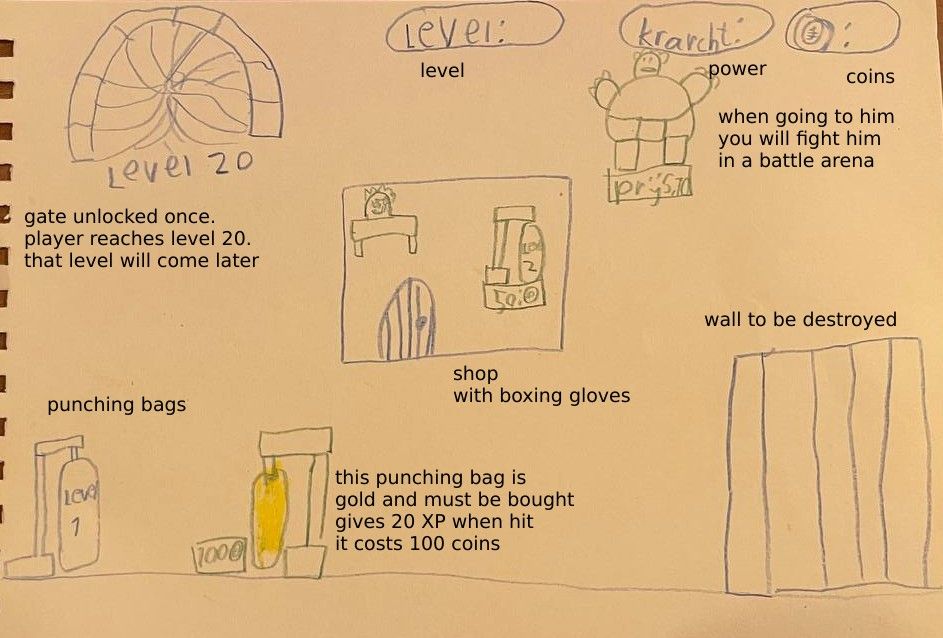 Level:
krarcht:
:
level
power
coins
when going to him
you will fight him
in a battle arena
Level 20
gate unlocked once.
player reaches level 20.
that level will come later
2
50:
wall to be destroyed
shop
with boxing gloves
punching bags
Level
1
this punching bag is
gold and must be bought
gives 20 XP when hit
it costs 100 coins
100